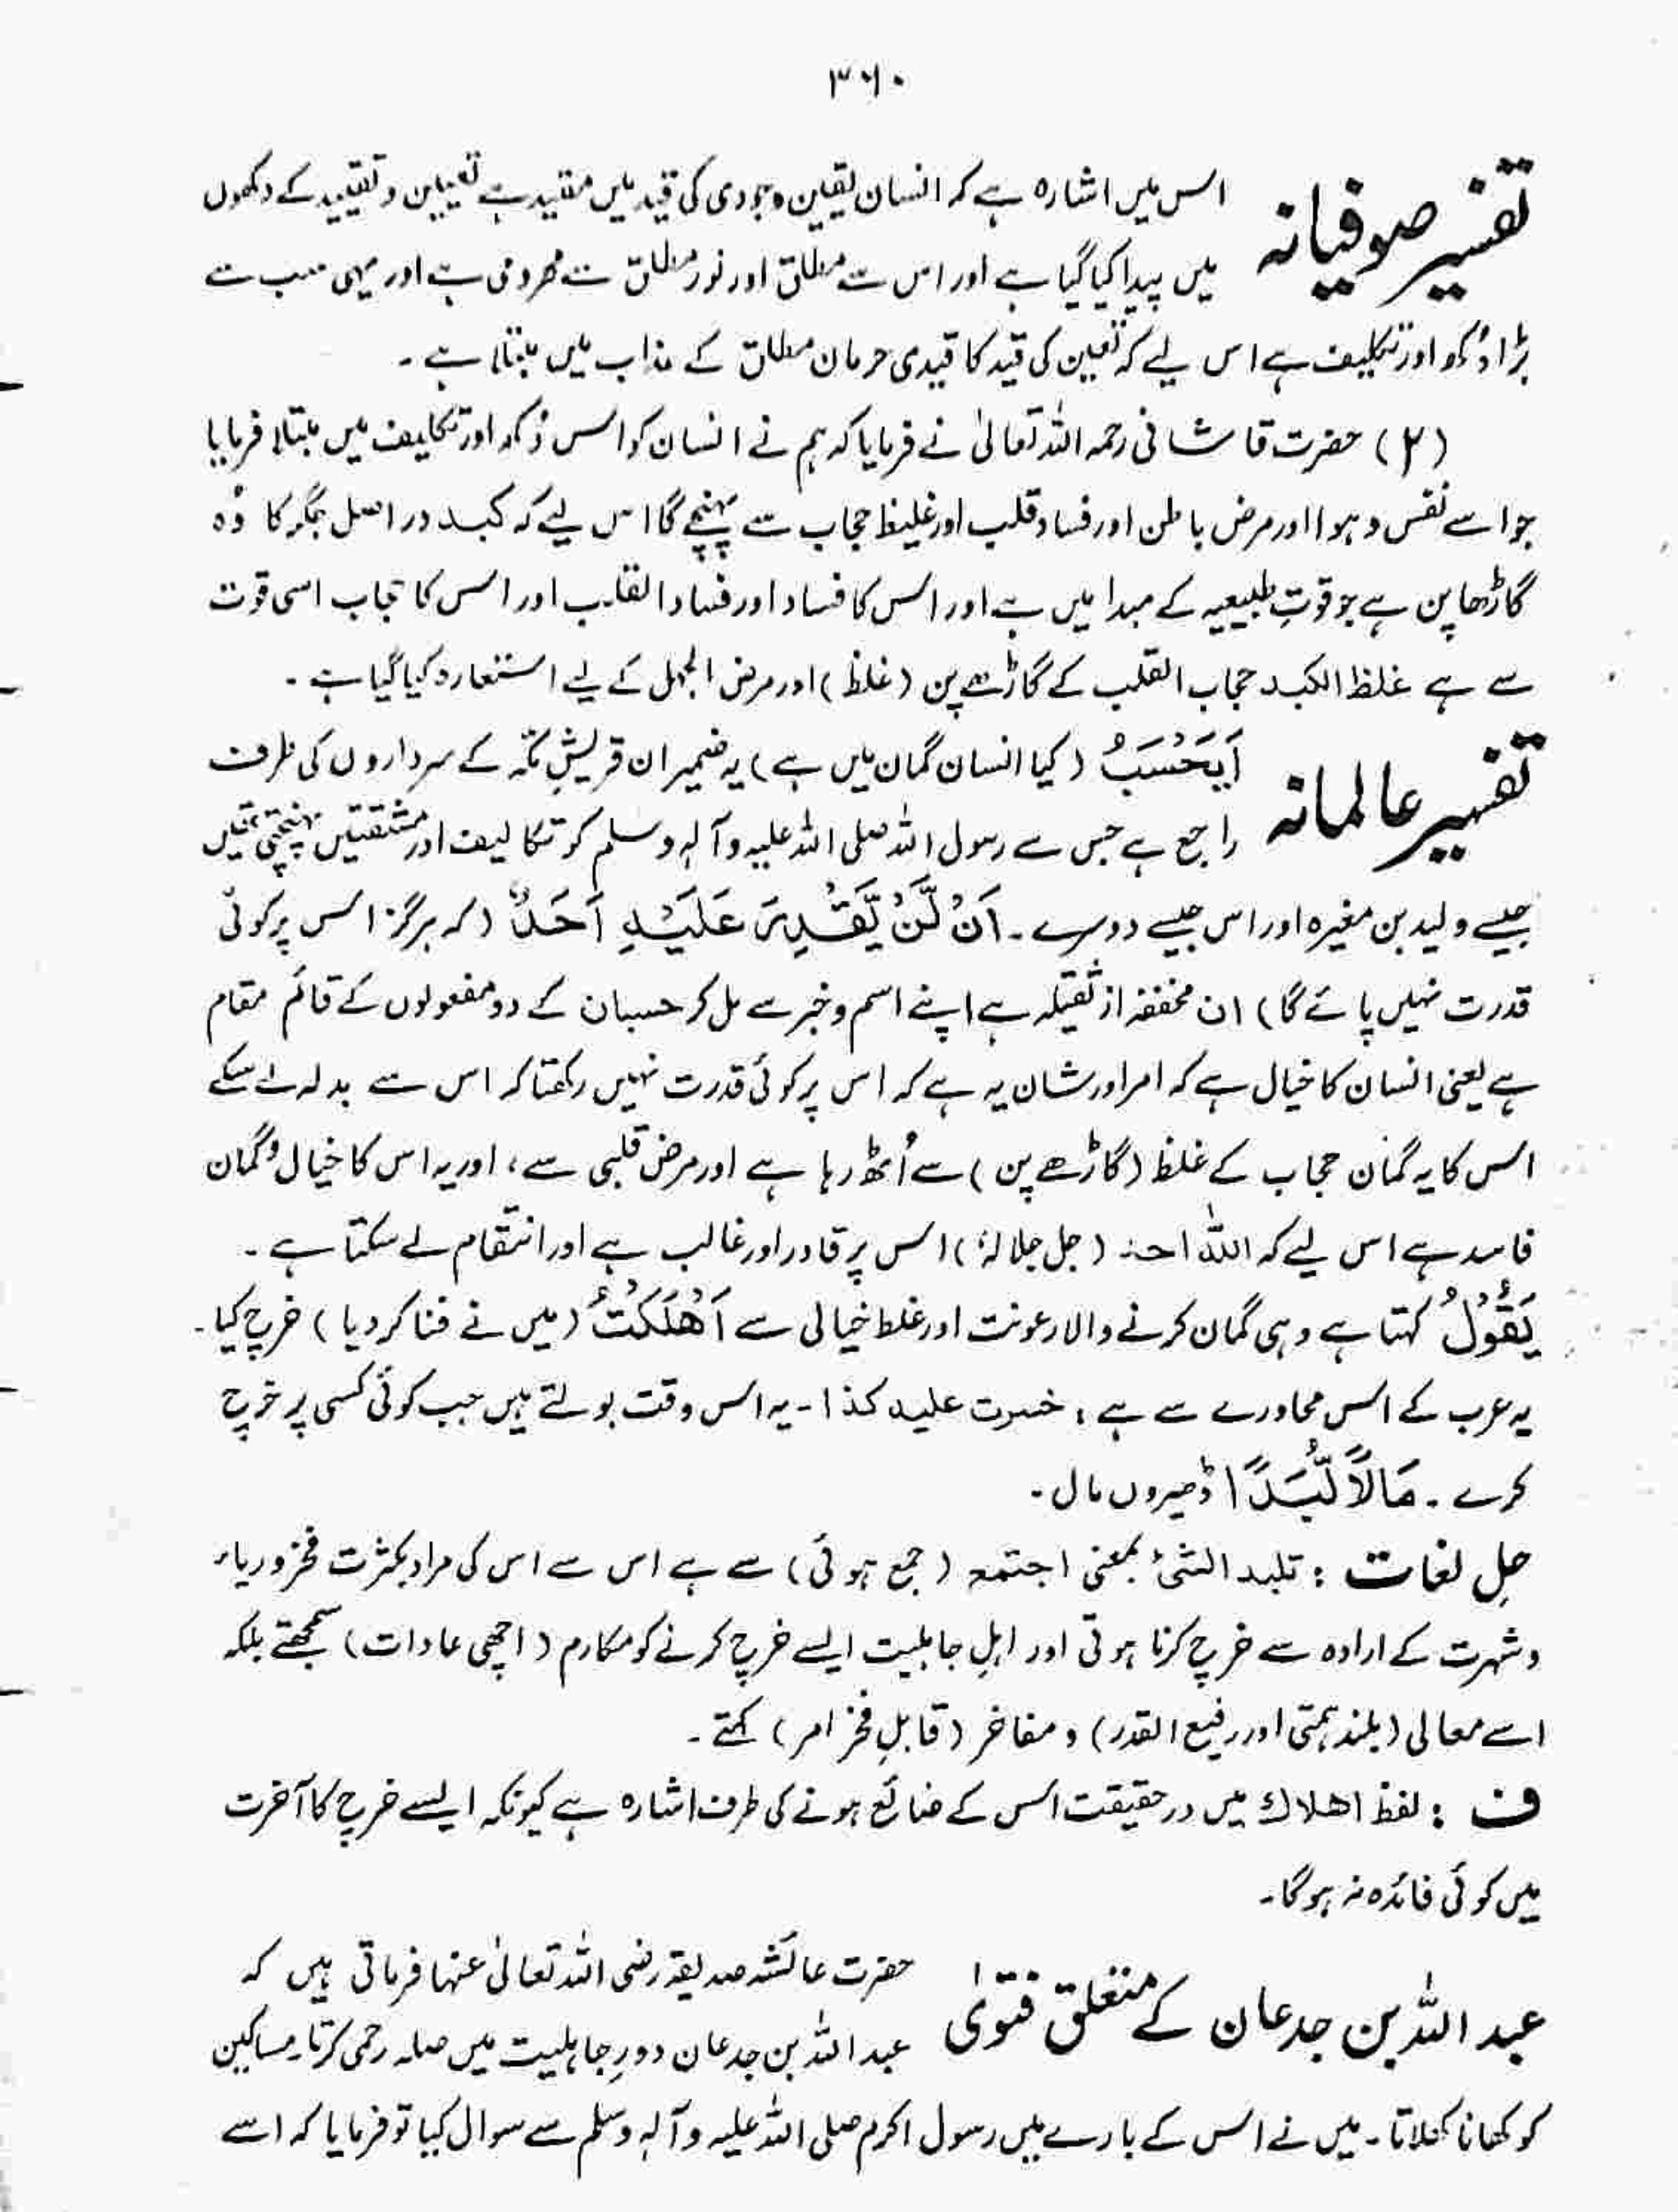 ۳۶۰
تفسیر صوفیانہ اس میں اشارہ ہے کہ انسان تعین وجودی کی قید میں مقید ہے تعیین و تقیید کے دکھوں
میں پیدا کیا گیا ہے اور اس سے مطلق اور نور مطلق سے محرومی ہے اور یہی سب سے
بڑا دُکھ اور تکلیف ہے اس لیے کہ تعین کی قید کا قیدی حرمان مطلق کے عذاب میں مبتلا ہے ۔
(۲) حضرت قاشانی رحمہ اللہ تعالیٰ نے فرمایا کہ ہم نے انسان کو اس دُکھ اور تکلیف میں مبتلا فرمایا
جو اسے نفس و ہوا اور مرض باطن اور فساد قلب اور غلیظ حجاب سے پہنچے گا اس لیے کہ کبد در اصل جگر کا وُہ
گاڑھا پن ہے جو قوتِ طبیعیہ کے مبدا میں ہے اور اس کا فساد اور فساد القلب اور اس کا حجاب اسی قوت
سے ہے غلظ الکبد حجاب القلب کے گاڑھے پن (غلظ) اور مرض الجہل کے لیے استعارہ کیا گیا ہے ۔
تفسیر عالمانہ اَيَحْسَبُ (کیا انسان گمان میں ہے) یہ ضمیر ان قریشِ مکّہ کے سرداروں کی طرف
راجع ہے جس سے رسول اللہ صلی اللہ علیہ وآلہٖ وسلم کو تکالیف اور مشقتیں پہنچتی تھیں
جیسے ولید بن مغیرہ اور اس جیسے دوسرے ۔ اَنْ لَّنْ يَّقْدِرَ عَلَيْهِ اَحَدٌ (کہ ہرگز اس پر کوئی
قدرت نہیں پائے گا) ان مخففہ از ثقیلہ ہے اپنے اسم و خبر سے مل کر حسبان کے دو مفعولوں کے قائم مقام
ہے یعنی انسان کا خیال ہے کہ امر اور شان یہ ہے کہ اس پر کوئی قدرت نہیں رکھتا کہ اس سے بدلہ لے سکے
اس کا یہ گمان حجاب کے غلظ (گاڑھے پن) سے اُٹھ رہا ہے اور مرض قلبی سے، اور یہ اس کا خیال و گمان
فاسد ہے اس لیے کہ اللہ احد (جل جلالہٗ) اس پر قادر اور غالب ہے اور انتقام لے سکتا ہے ۔
يَقُوْلُ کہتا ہے وہی گمان کرنے والا رعونت اور غلط خیالی سے اَهْلَكْتُ (میں نے فنا کر دیا) خرچ کیا۔
یہ عرب کے اس محاورے سے ہے : خسرت علیہ کذا ۔ یہ اس وقت بولتے ہیں جب کوئی کسی پر خرچ
کرے ۔ مَالًا لُّبَدًا ڈھیروں مال ۔
حلِ لغات : تلبد الشئ بمعنی اجتمع (جمع ہوئی) سے ہے اس سے اس کی مراد بکثرت فخر و ریاء
و شہرت کے ارادہ سے خرچ کرنا ہوتی اور اہلِ جاہلیت ایسے خرچ کرنے کو مکارم (اچھی عادات) سمجھتے بلکہ
اسے معالی (بلند ہمتی اور رفیع القدر) و مفاخر (قابلِ فخر امر) کہتے ۔
ف : لفظ اھلاك میں درحقیقت اس کے ضائع ہونے کی طرف اشارہ ہے کیونکہ ایسے خرچ کا آخرت
میں کوئی فائدہ نہ ہوگا۔
عبد اللہ بن جدعان کے متعلق فتویٰ حضرت عائشہ صدیقہ رضی اللہ تعالیٰ عنہا فرماتی ہیں کہ
عبد اللہ بن جدعان دورِ جاہلیت میں صلہ رحمی کرتا۔ مساکین
کو کھانا کھلاتا۔ میں نے اس کے بارے میں رسول اکرم صلی اللہ علیہ وآلہٖ وسلم سے سوال کیا تو فرمایا کہ اسے